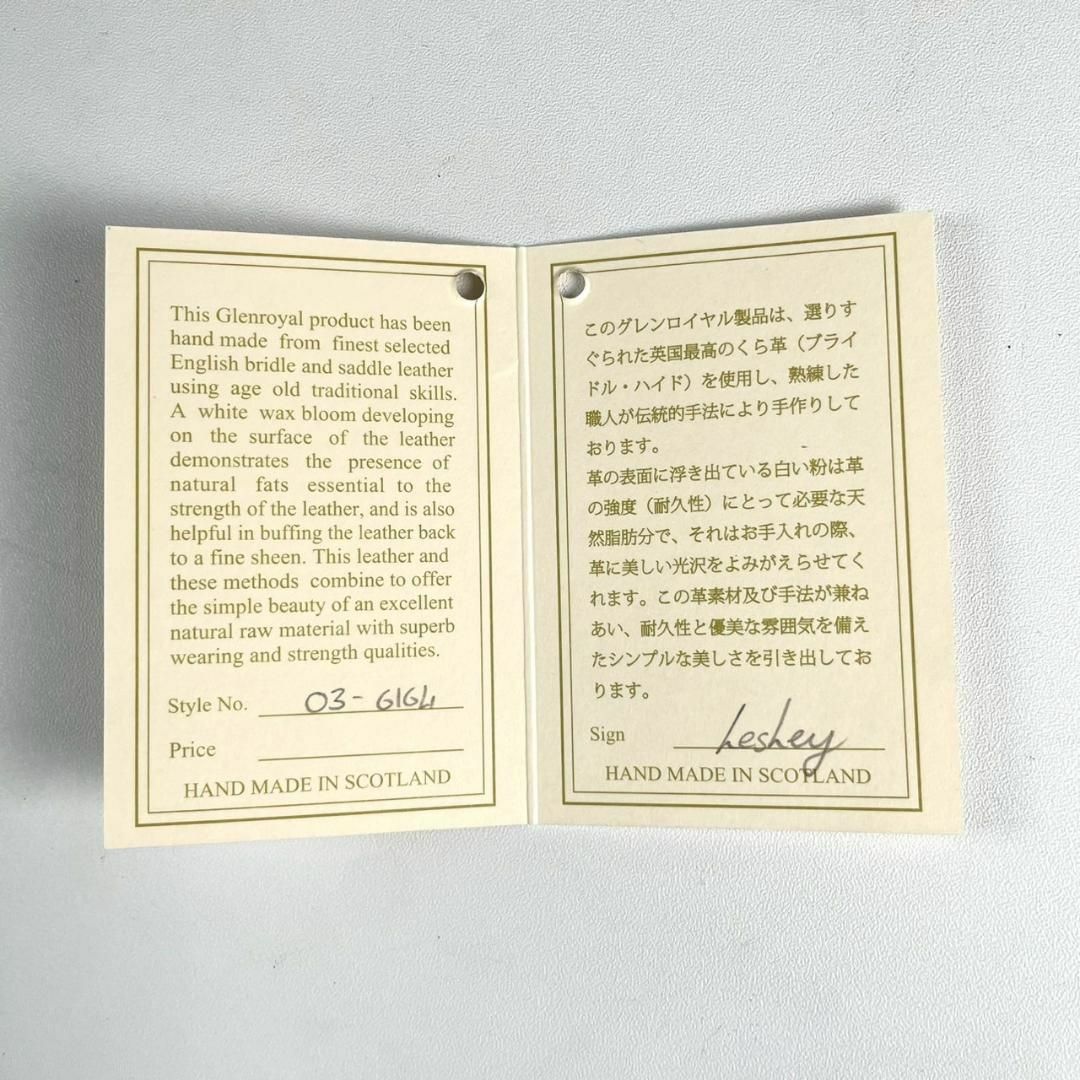 This Glenroyal product has been
hand made from finest selected
English bridle and saddle leather
using age old traditional skills.
A white wax bloom developing
on the surface of the leather
demonstrates the presence of
natural fats essential to the
strength of the leather, and is also
helpful in buffing the leather back
to a fine sheen. This leather and
these methods combine to offer
the simple beauty of an excellent
natural raw material with superb
wearing and strength qualities.
Style No. 03-6164
Price
HAND MADE IN SCOTLAND
このグレンロイヤル製品は、選りす
ぐられた英国最高のくら革（ブライ
ドル・ハイド）を使用し、熟練した
職人が伝統的手法により手作りして
おります。
革の表面に浮き出ている白い粉は革
の強度（耐久性）にとって必要な天
然脂肪分で、それはお手入れの際、
革に美しい光沢をよみがえらせてく
れます。この革素材及び手法が兼ね
あい、耐久性と優美な雰囲気を備え
たシンプルな美しさを引き出してお
ります。
Sign Leshey
HAND MADE IN SCOTLAND